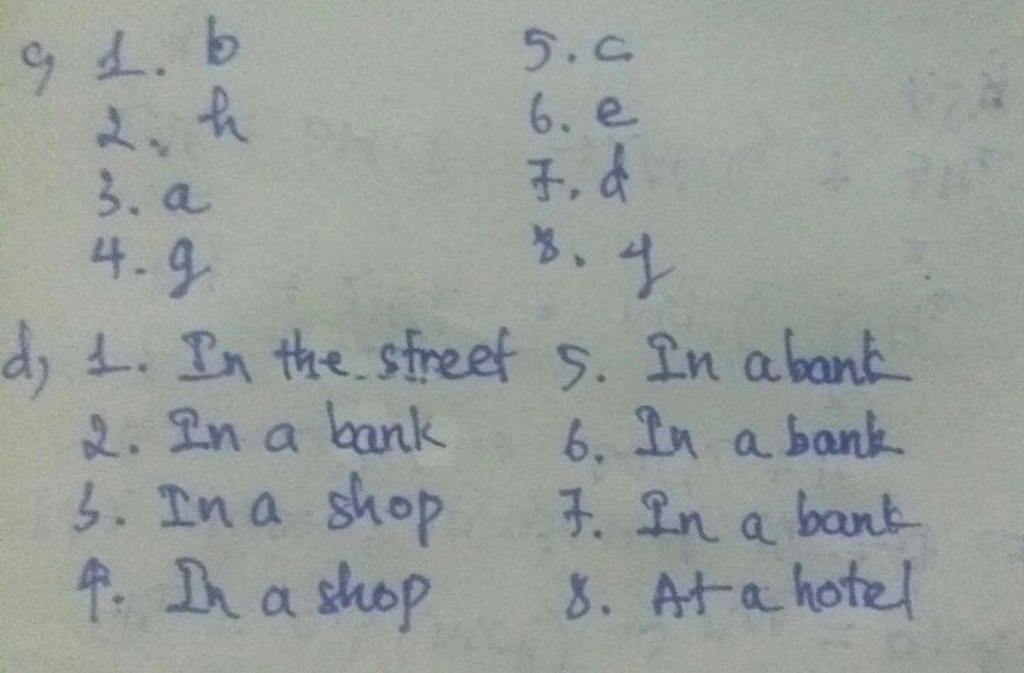 c) 1. b 5. c
2. h 6. e
3. a 7. d
4. g 8. f
d) 1. In the street 5. In a bank
2. In a bank 6. In a bank
3. In a shop 7. In a bank
4. In a shop 8. At a hotel